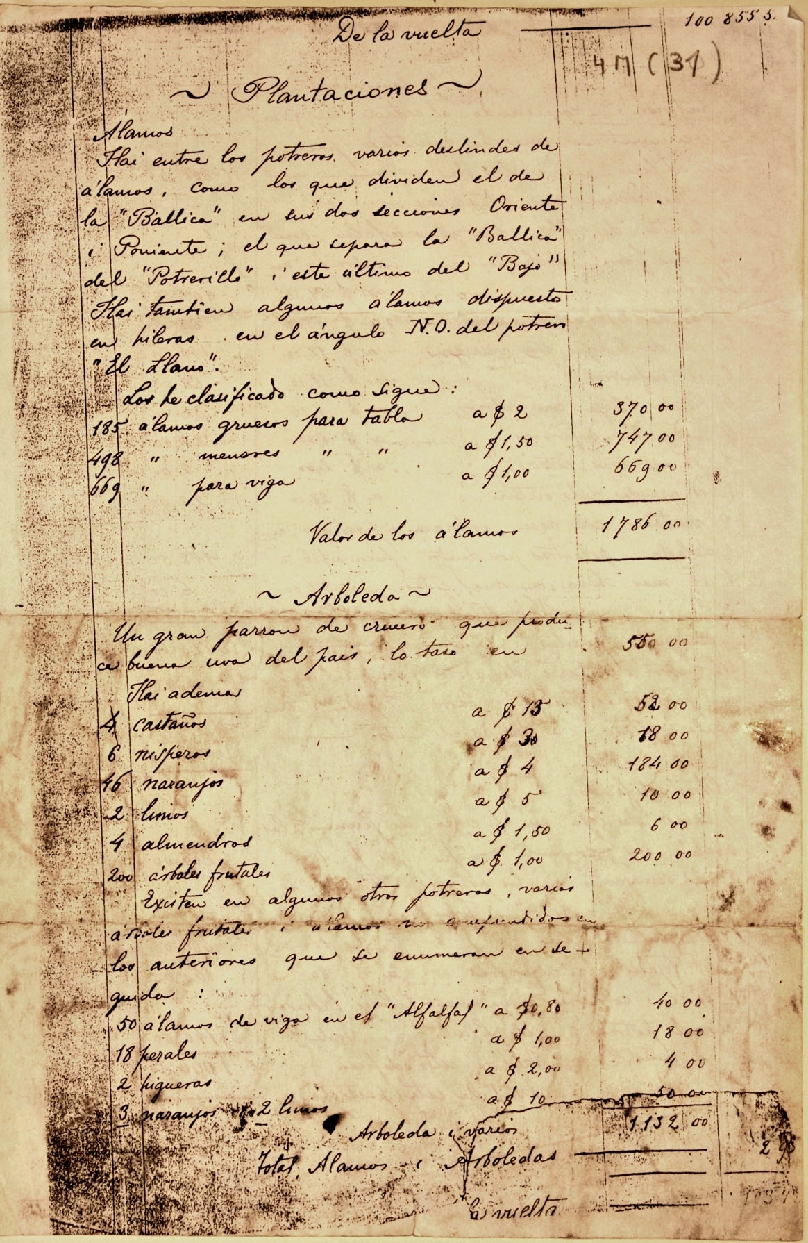 De la vuelta 100 855 5.
4 M (31)
~ Plantaciones ~
Álamos
Hai entre los potreros varios deslindes de
álamos, como los que dividen el de
la "Ballica" en sus dos secciones Oriente
i Poniente; el que separa la "Ballica"
del "Potrerillo" i este último del "Bajo"
Hai tambien algunos álamos dispuesto
en hileras en el ángulo N.O. del potrero
"El Llano".
Los he clasificado como sigue:
185 álamos gruesos para tabla a $ 2 370 00
498 " menores " " a $ 1,50 747 00
669 " para viga a $ 1,00 669 00
Valor de los álamos 1786 00
~ Arboleda ~
Un gran parron de crucero que produ-
ce buena uva del pais, lo taso en 550 00
Hai ademas
4 castaños a $ 13 52 00
6 nisperos a $ 18 00
46 naranjos a $ 4 184 00
2 limos a $ 5 10 00
4 almendros a $ 1,50 6 00
200 árboles frutales a $ 1,00 200 00
Existen en algunos otros potreros, varios
árboles frutales i álamos no comprendidos en
los anteriores que se enumeran en se-
guida:
50 álamos de viga en el "Alfalfal" a $0,80 40 00
18 perales a $ 1,00 18 00
2 higueras a $ 2,00 4 00
3 naranjos i 2 limos a $ 10 50 00
Arboleda i varios 1.132 00
Total, Alamos i Arboledas
la vuelta